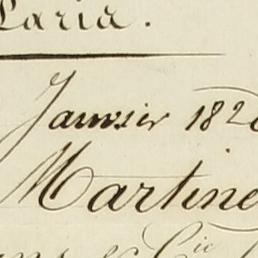 Paria.
Janvier 182
Martine
& Cie